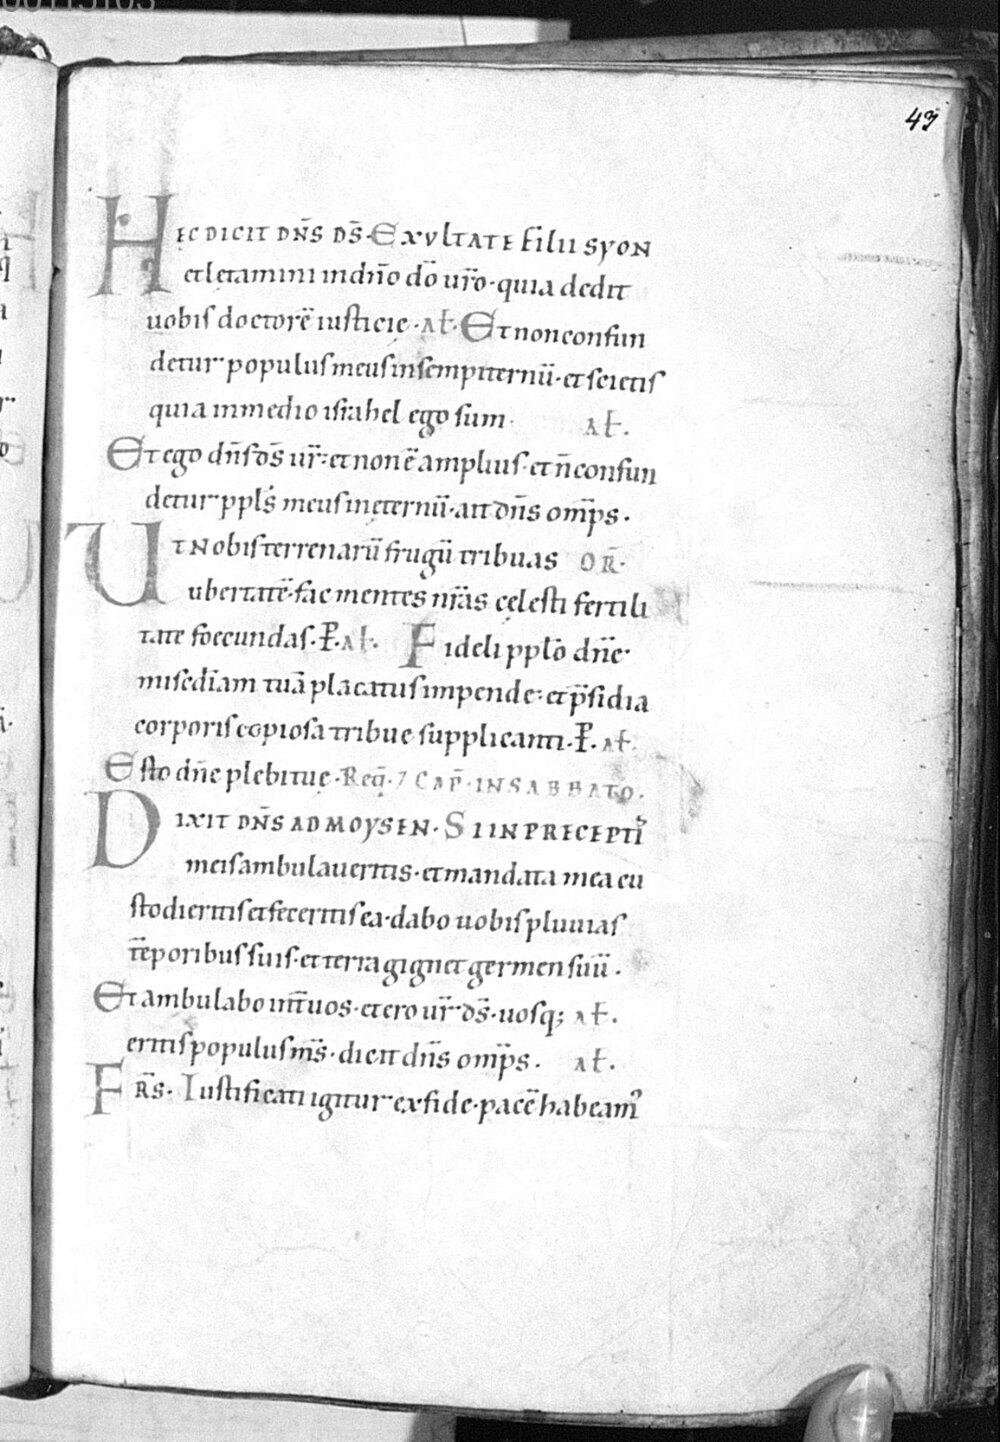 43
HĘC DICIT DN̄S DS̄. EXVLTATE FILII SYON
et lętamini in dn̄o dō ur̄o. quia dedit
uobis doctorē iusticię. Al̄. Et non confun
detur populus meus in sempiternū. et scietis
quia in medio israhel ego sum. Al̄.
Et ego dn̄s ds̄ ur̄. et non ē amplius. et n̄ confun
detur ppl̄s meus in ęternū. ait dn̄s om̄ps.
UT Nobis terrenarū frugū tribuas OR̄.
ubertatē. fac mentes nr̄as cęlesti fertili
tate foecundas. P̄. Al̄. Fideli pplō dn̄e.
misediam tuā placatus impende. et p̄sidia
corporis copiosa tribue supplicanti. P̄. Al̄.
Esto dn̄e plebi tuę. Req̄. 7 CAP̄. IN SABBATO.
DIXIT DN̄S AD MOYSEN. SI IN PRECEPTIS
meis ambulaueritis. et mandata mea cu
stodieritis et feceritis ea. dabo uobis pluuias
tēporibus suis. et terra gignet germen suū.
Et ambulabo int̄ uos. et ero ur̄ ds̄. uosq; Al̄.
eritis populus ms̄. dicit dn̄s om̄ps. Al̄.
FR̄S. Iustificati igitur ex fide. pacē habeam᾿